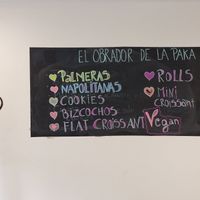 EL OBRADOR DE LA PAKA
PALMERAS
NAPOLITANAS
COOKIES
BIZCOCHOS
FLAT CROISSANT
ROLLS
MINI
CROISSANT
Vegan